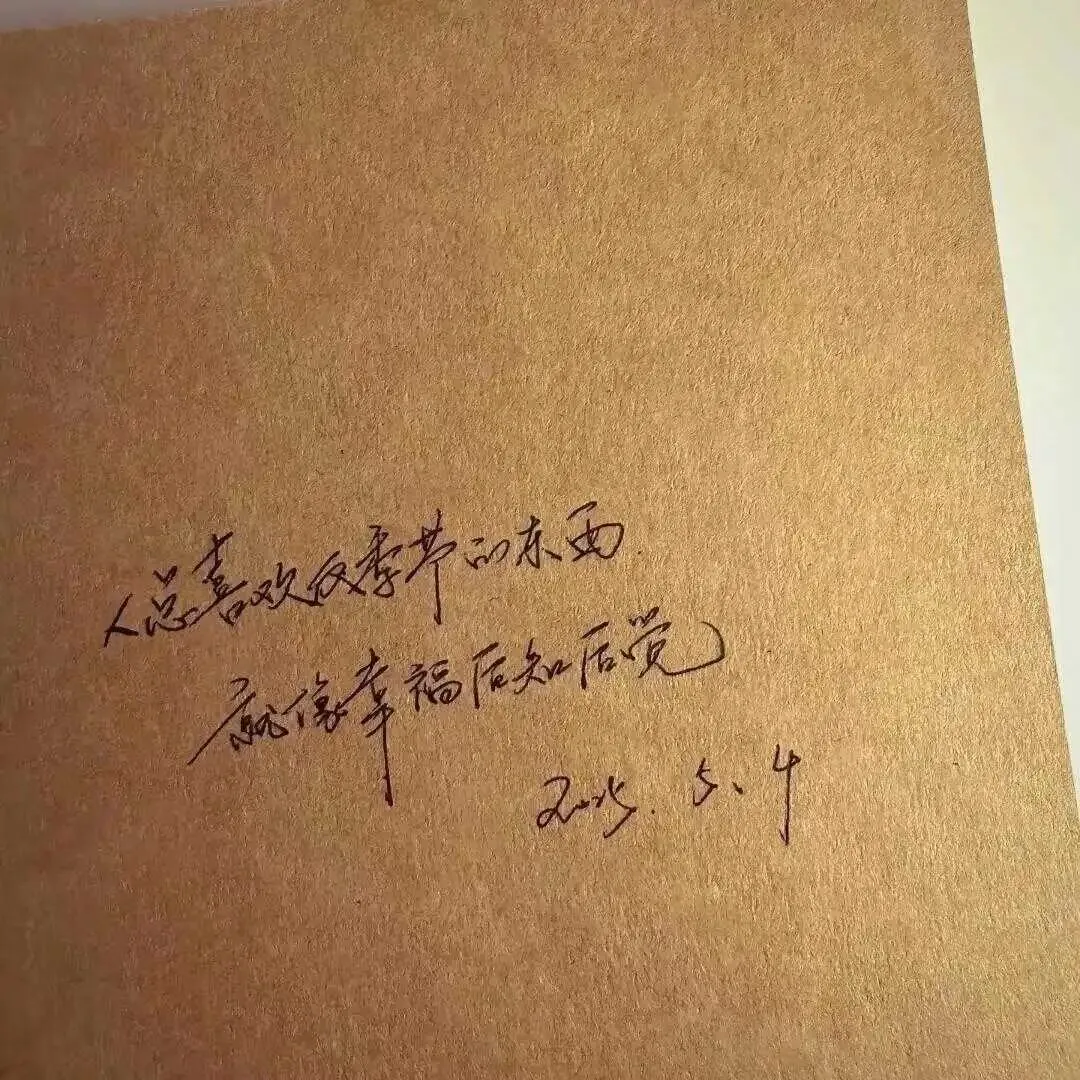 人总喜欢反季节的东西
就像幸福后知后觉
2025.5.4